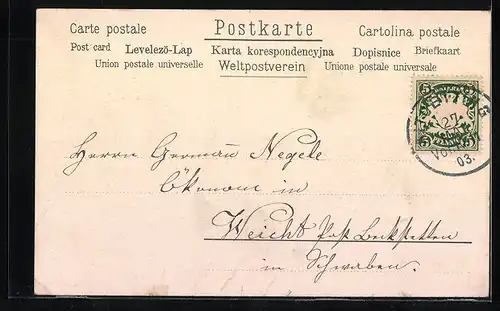 Carte postale Postkarte Cartolina postale
Post card Levelező-Lap Karta korespondencyjna Dopisnice Briefkaart
Union postale universelle Weltpostverein Unione postale universale
5 5
27
03.
Herrn Germau Negele
Ökonom in
Weicht Post Beckstetten
in Schwaben.